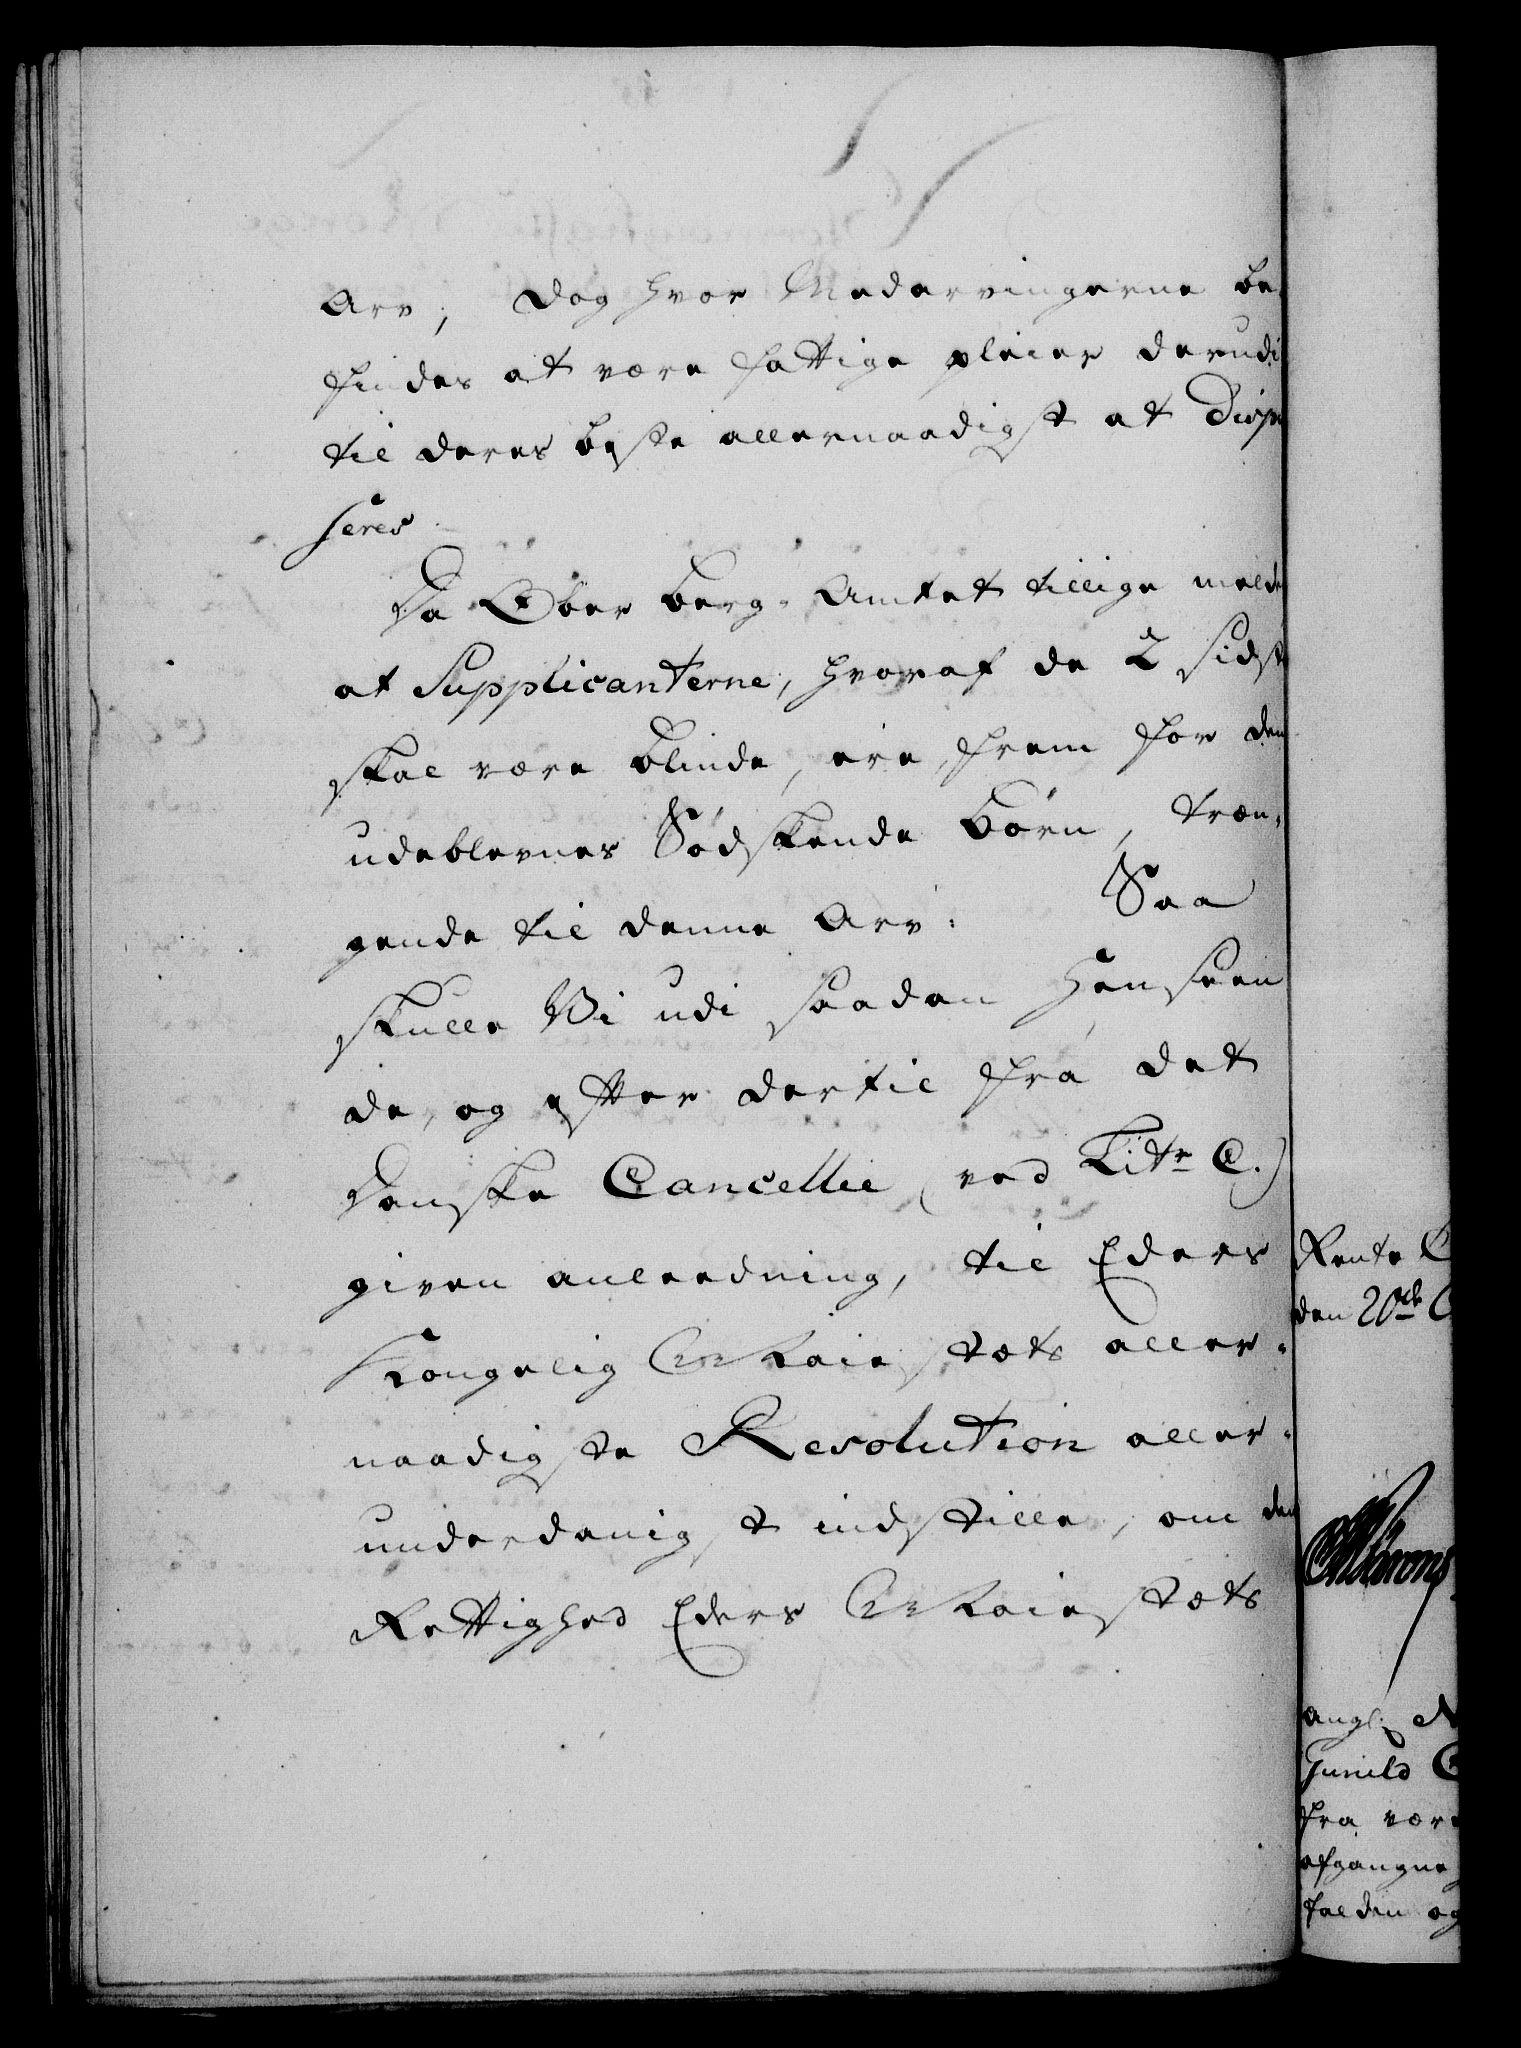 Arv, dog hvor Medarvingerne be-
findes at være fattige pleier derudi
til deres beste allernaadigst at disp
seres
Da Ober Berg-Amtet tillige melde
at Supplicanterne, hvoraf de 2 sidst
skal være blinde, ere, frem for den
udeblevnes Sødskende Børn, træn-
gende til denne Arv: Saa
skulle Vi udi saadan Henseen
de, og efter dertil fra det
Danske Cancellie (ved Litr C.)
given anleedning, til Eders
Kongelig Maiestæts aller-
naadigste Resolution aller-
underdanigst indstille, om den
Rettighed Eders Maiestæts
Rente C
den 20de
angl:
Gunild
fra vær
afgangne
falden og